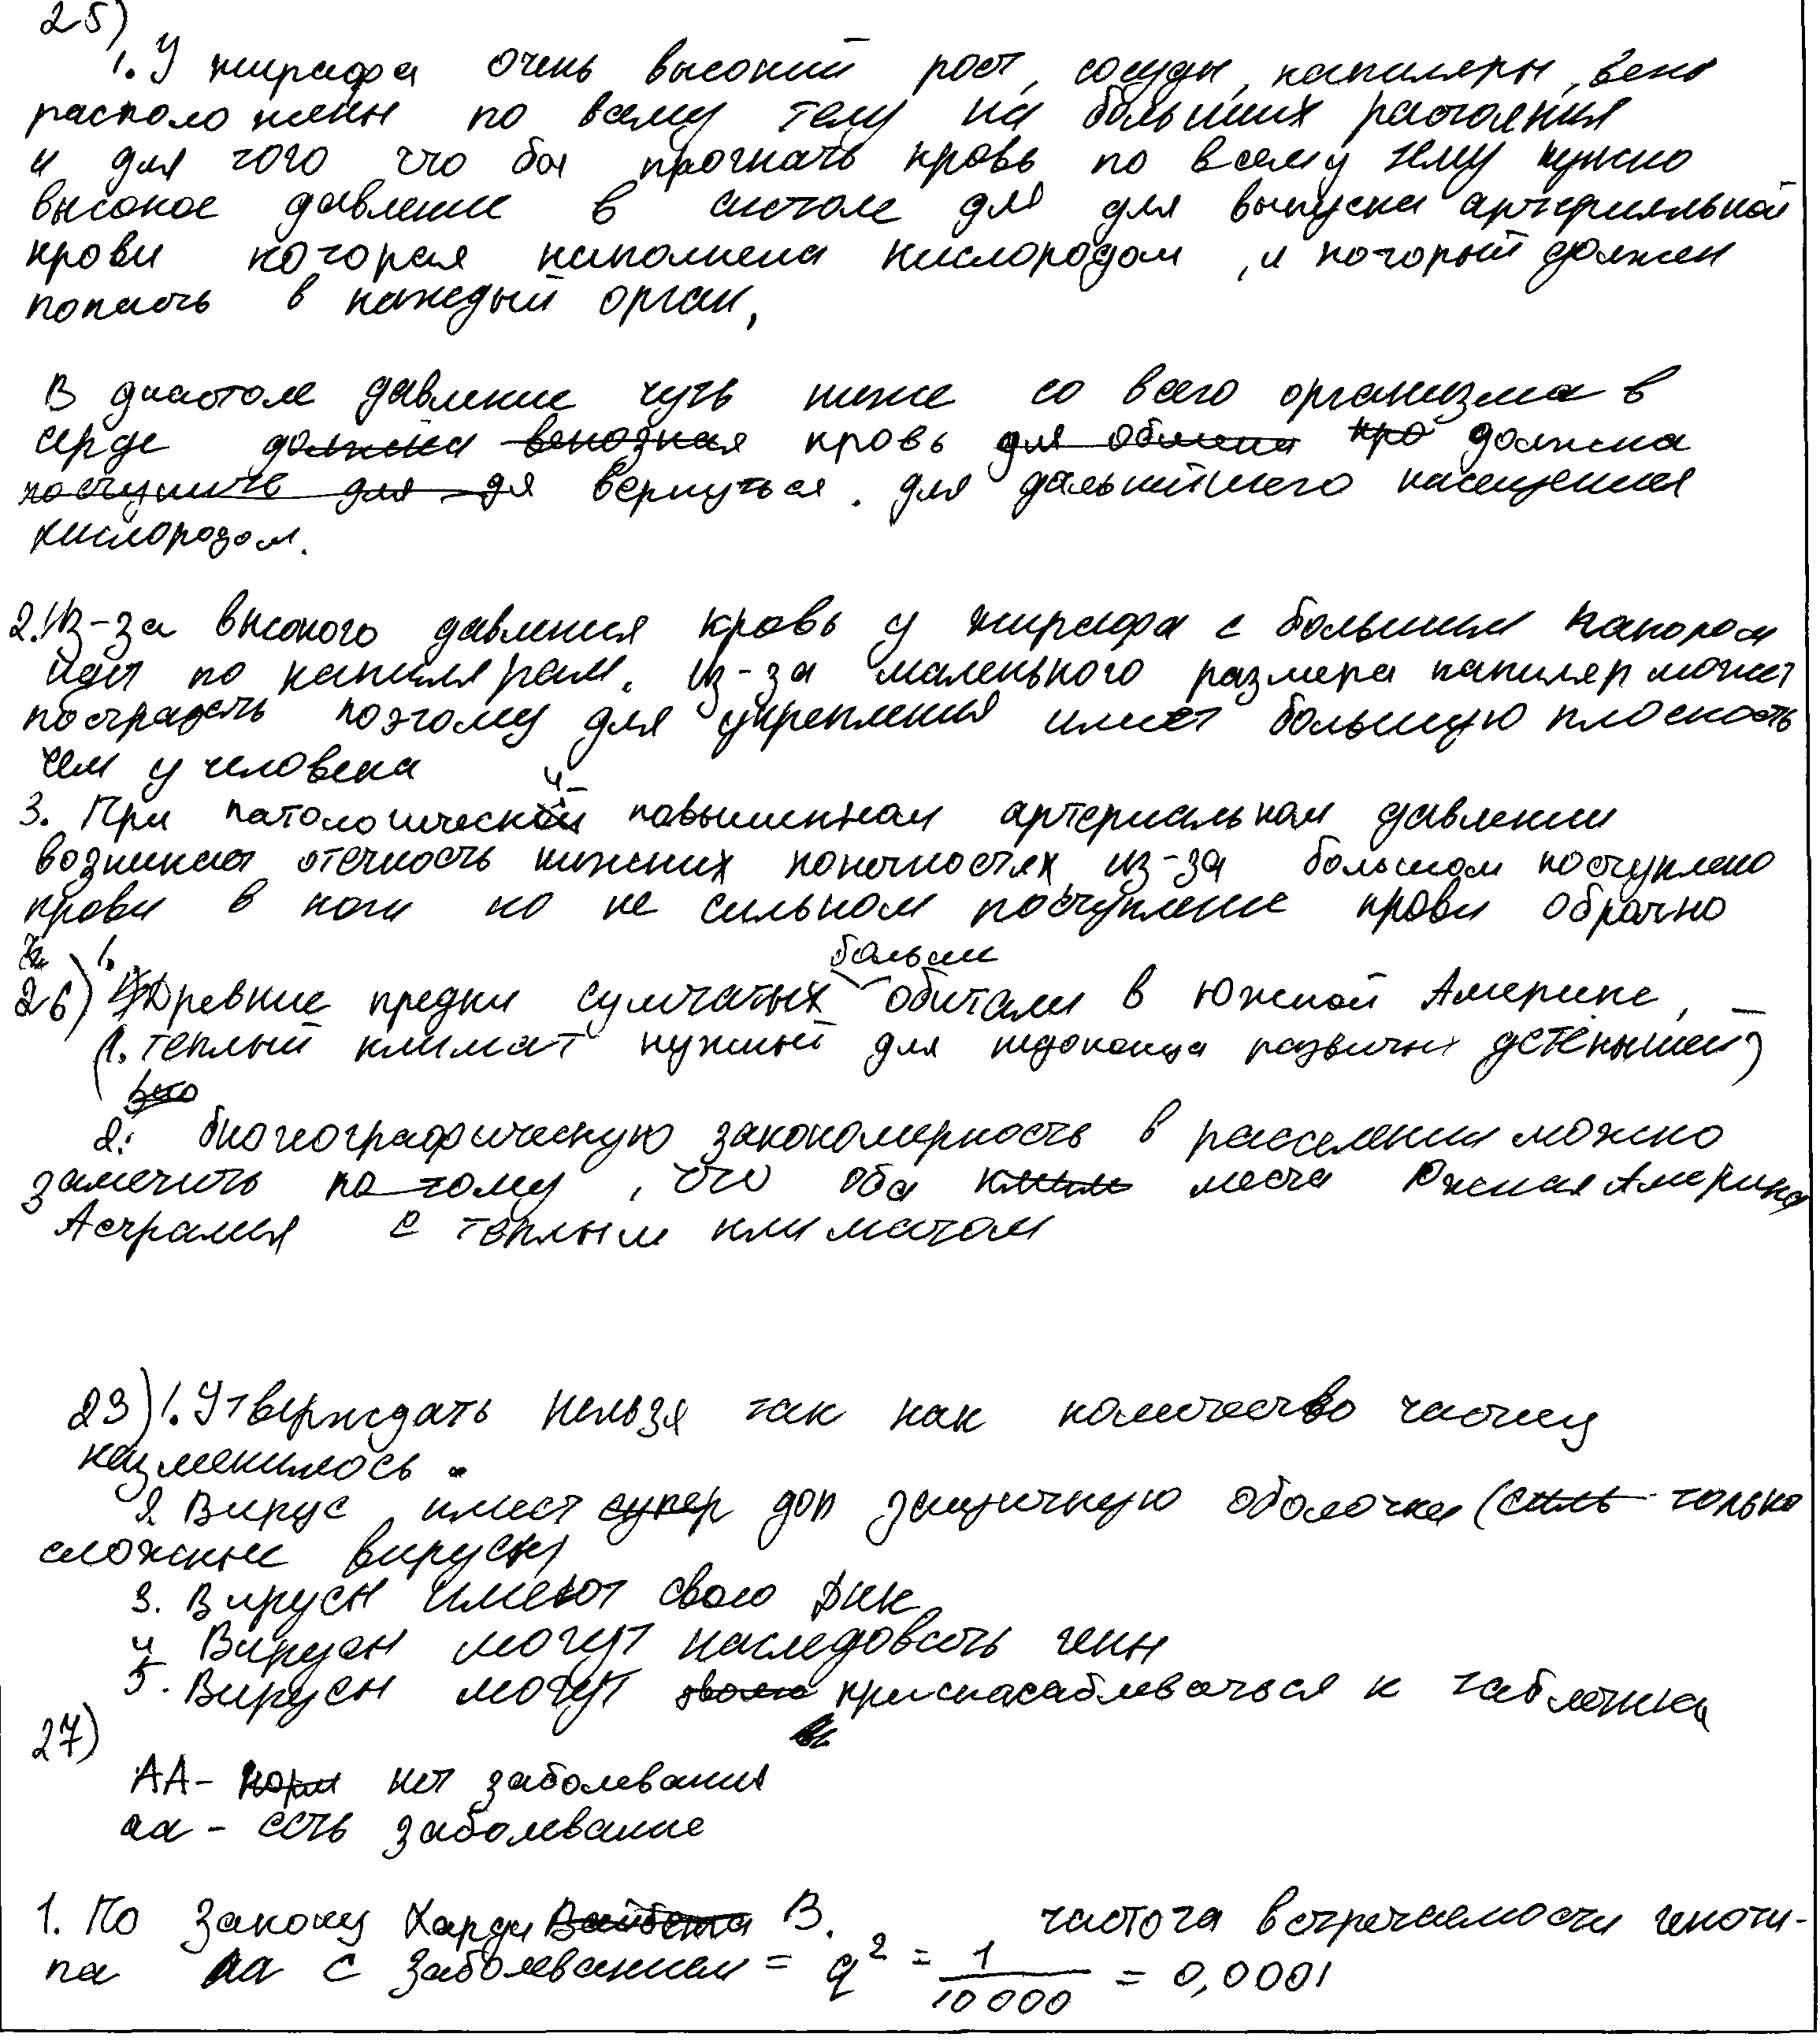 25)
1. У жирафа очень высокий рост, сосуды, капиляры, вены
расположены по всему телу на больших растояния
и для того что бы прогнать кровь по всему телу нужно
высокое давление в систоле для для выпуска артерияльной
крови которая наполнена кислородом, и который должен
попасть в каждый орган,
В диастоле давление чуть ниже со всего организма в
серде должна венозная кровь для обмена кро должна
поступить для дя вернуться. для дальнийшего насещения
кислородом.
2. Из-за высокого давления кровь у жирафа с большим напором
идет по капилярам. Из-за маленького размера капиляр может
пострадать поэтому для укрепления имеет большую плосность
чем у человека
3. При патологически повышенном артериальном давлении
возникает отечность нижних коночностях из-за большом поступлено
крови в ноги но не сильном поступление крови обратно
26) 1. Древние предки сумчатых больше обитали в Южной Америке,
(1. теплый климат нужный для недоконца развитых детёнышей)
2. биогеографическую закономерность в расселении можно
заметить по тому, что оба клим места Южная Америка
Астралия с теплым климатом
23) 1. Утверждать нельзя так как количество частиц
неизменилось.
2 Вирус имеет супер доп защитную оболочка (силь только
сложные вирусы
3. Вирусы имеют свою днк
4 Вирусы могут наследовать гены
5. Вирусы могут приспасабливаться к таблетка
27)
АА - норм нет заболевания
аа - есть заболевание
1. По закону Харди Вайбета В. частота встречаемости геноти-
па аа с заболеванием = q² = 1/10000 = 0,0001